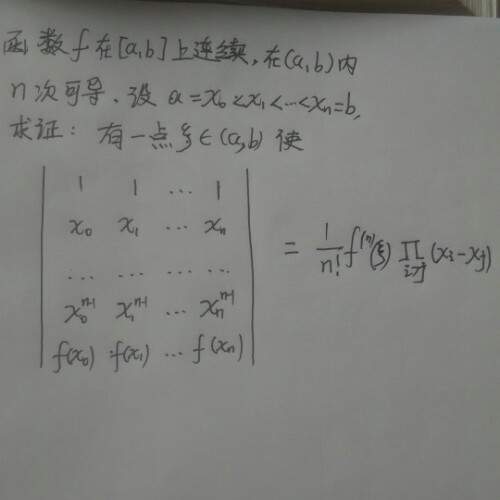 函数f在[a,b]上连续,在(a,b)内
n次可导.设 a=x₀<x₁<…<xₙ=b,
求证: 有一点ξ∈(a,b)使
| 1 1 … 1 |
| x₀ x₁ … xₙ |
| … … … … … |
| x₀ⁿ⁻¹ x₁ⁿ⁻¹ … xₙⁿ⁻¹ |
| f(x₀) f(x₁) … f(xₙ) | = 1/n! f⁽ⁿ⁾(ξ) ∏_{i>j} (xᵢ-xⱼ)